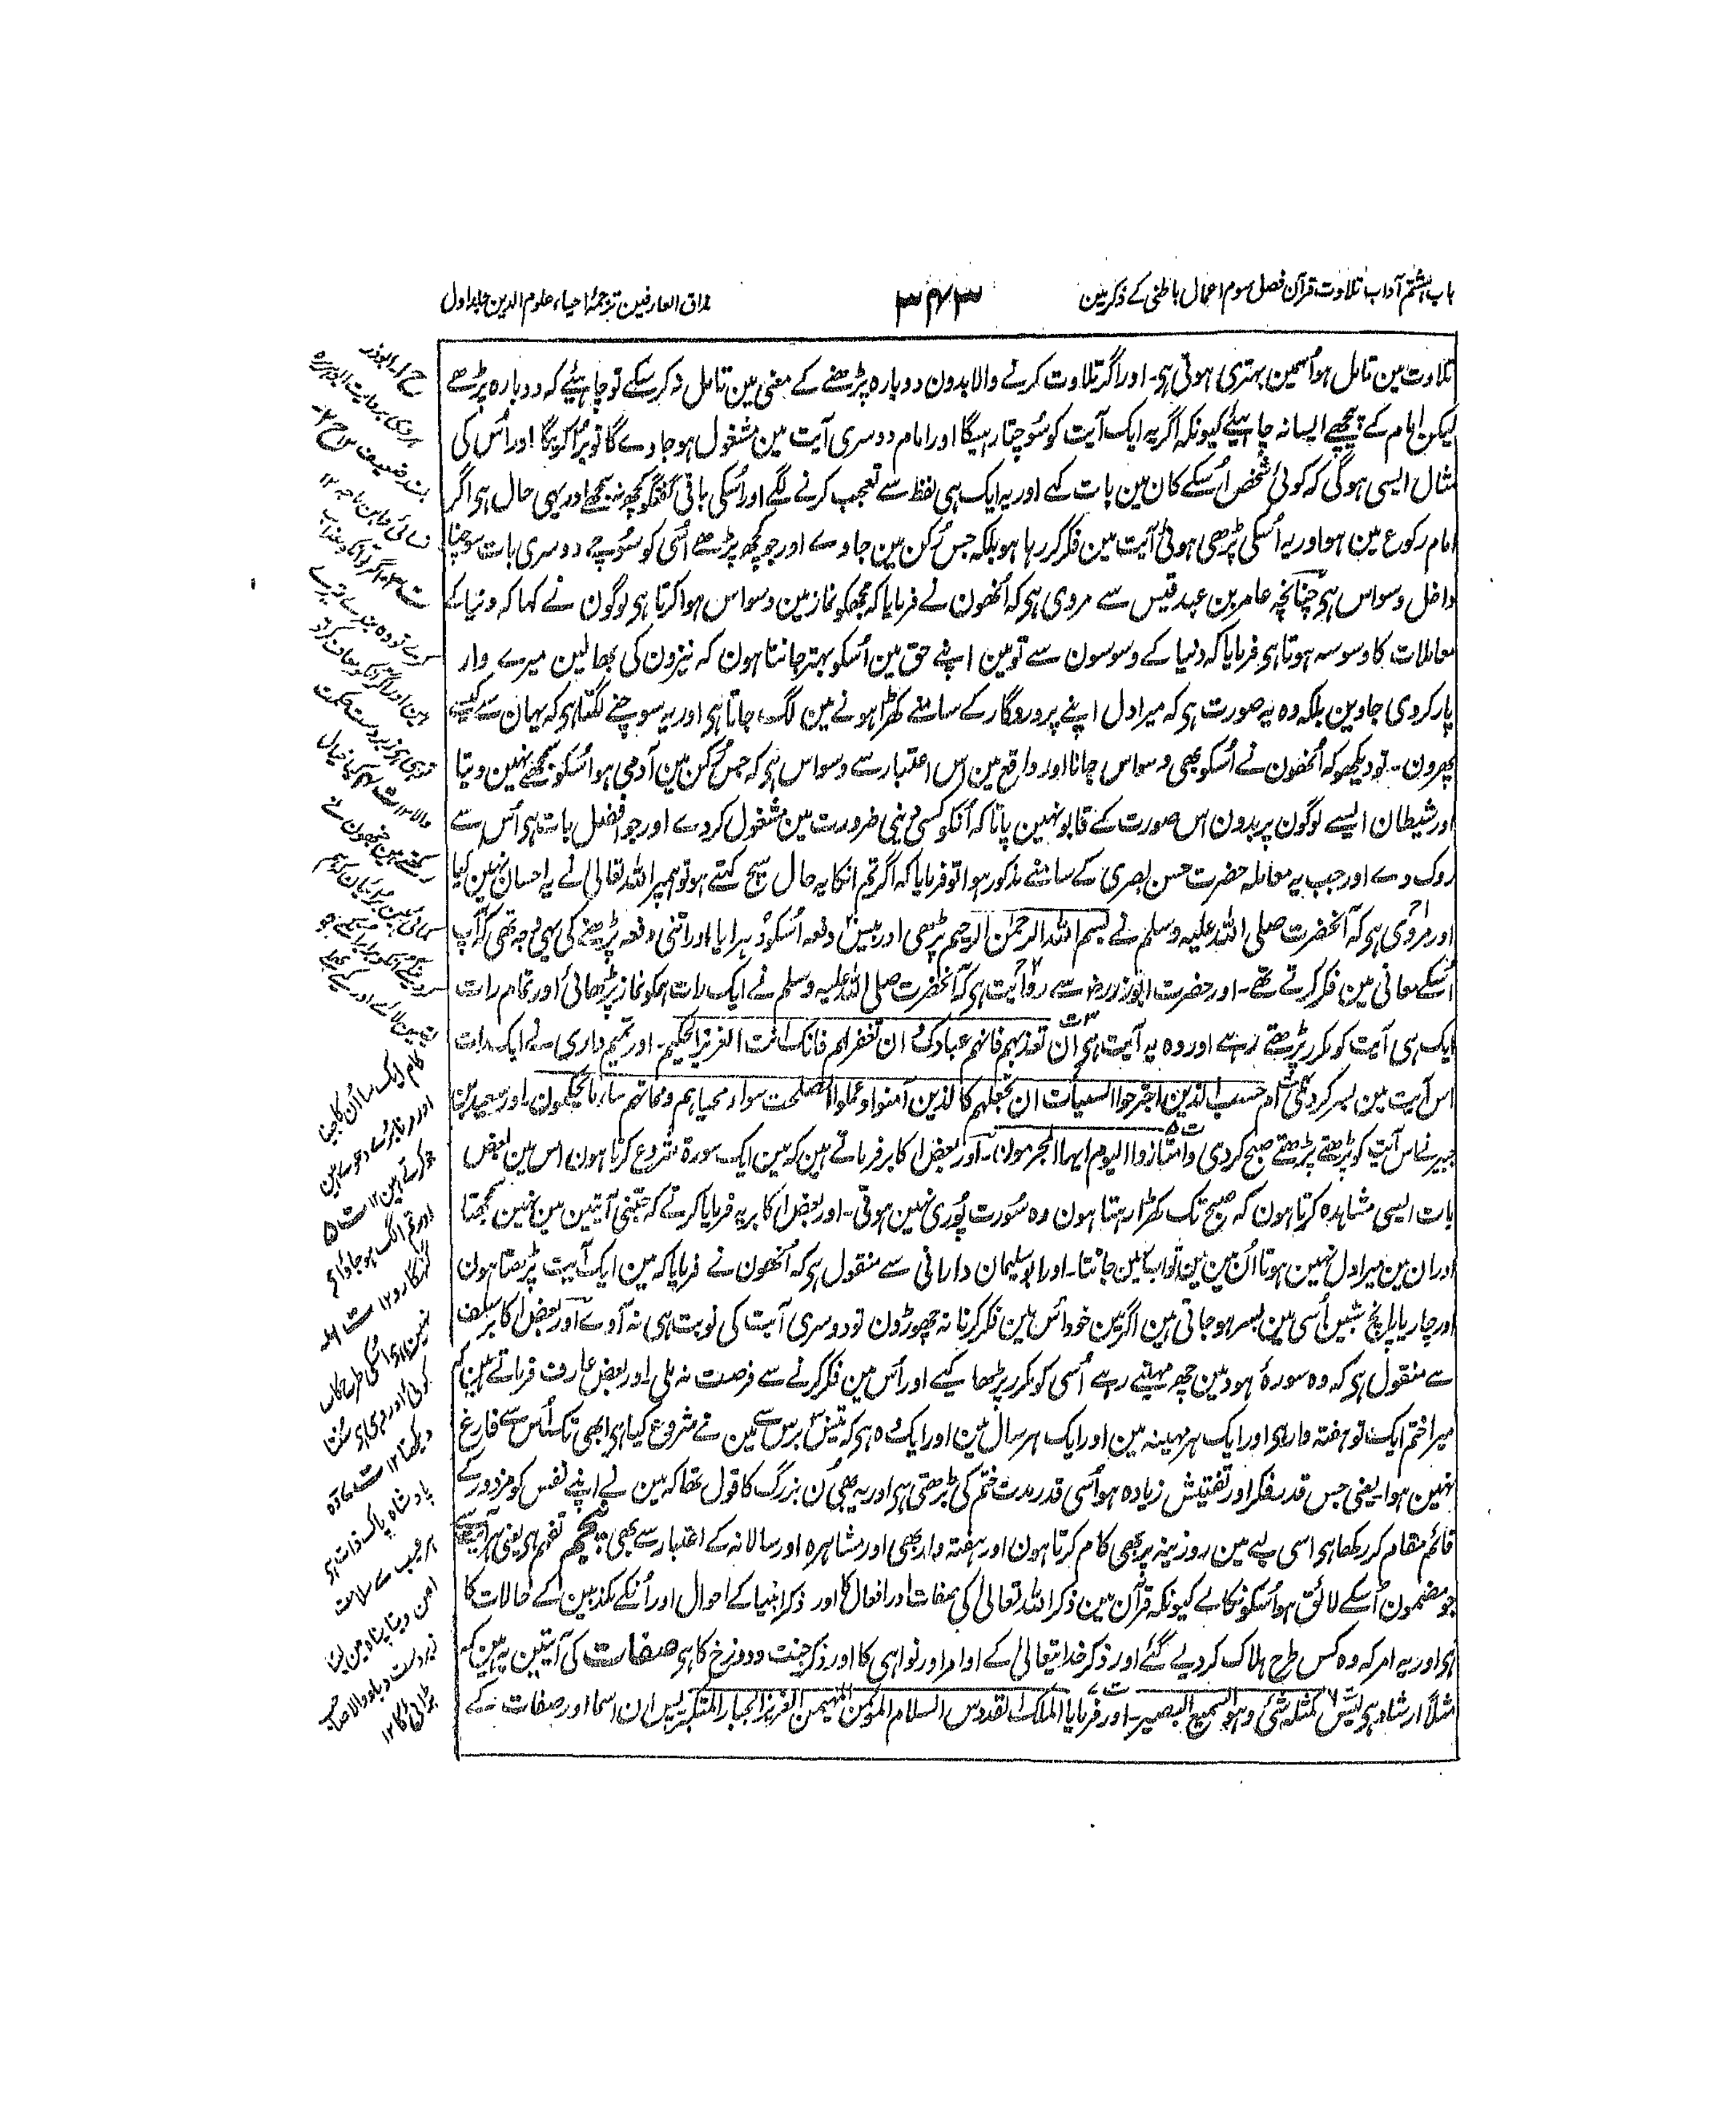 باب ہشتم آداب تلاوت قرآن فصل سوم اعمال باطنی کے ذکر مین
۳۷۳
مذاق العارفین ترجمۂ احیاء علوم الدین جلد اول
تلاوت مین تامل ہو اُسمین بہتری ہوتی ہی۔ اور اگر تلاوت کرنے والا بدون دوبارہ پڑھنے کے معنی مین تامل نہ کر سکے تو چاہیئے کہ دوبارہ پڑھے
لیکن امام کے پیچھے ایسا نہ چاہیئے کیونکہ اگر یہ ایک آیت کو سُوچتا رہیگا اور امام دوسری آیت مین مشغول ہو جاوے گا تو بُرا کریگا اور اُس کی
مثال ایسی ہوگی کہ کوئی شخص اُسکے کان مین بات کہے اور یہ ایک ہی لفظ سے تعجب کرنے لگے اور اُسکی باقی گفتگو کچھ نہ سمجھے اور یہی حال ہی اگر
امام رکوع مین ہو اور یہ اُسکی پڑھی ہوئی آیت مین فکر کر رہا ہو بلکہ جس رُکن مین جاوے اور جو کچھ پڑھے اُسی کو سُوچے دوسری بات سوچنا
داخل وسواس ہی چنانچہ عامر بن عبد قیس سے مروی ہی کہ اُنھون نے فرمایا کہ مجھکو نماز مین وسواس ہوا کرتا ہی لوگون نے کہا کہ دنیا کے
معاملات کا وسوسہ ہوتا ہی فرمایا کہ دنیا کے وسوسون سے تو مین اپنے حق مین اُسکو بہتر جانتا ہون کہ نیزون کی بھالین میرے وار
پار کر دی جاوین بلکہ وہ یہ صورت ہی کہ میرا دل اپنے پروردگار کے سامنے کھڑا ہونے مین لگ جاتا ہی اور یہ سوچنے لگتا ہی کہ یہان سے کیسے
پھرون۔ تو دیکھو کہ اُنھون نے اُسکو بھی وسواس جانا اور واقع مین اس اعتبار سے وسواس ہی کہ جس رُکن مین آدمی ہو اُسکو سمجھنے نہین دیتا
اور شیطان ایسے لوگون پر بدون اس صورت کے قابو نہین پاتا کہ اُنکو کسی دینی ضرورت مین مشغول کر دے اور جو افضل بات ہی اُس سے
روک دے اور جب یہ معاملہ حضرت حسن بصری کے سامنے مذکور ہوا تو فرمایا کہ اگر تم انکا یہ حال سچ کہتے ہو تو ہمپر اللہ تعالی نے یہ احسان نہین کیا
اور مروی ہی کہ آنحضرت صلی اللہ علیہ وسلم نے بسم اللہ الرحمن الرحیم پڑھی اور بیس دفعہ اُسکو دُہرایا اور اتنی دفعہ پڑھنے کی یہی وجہ تھی کہ آپ
اُسکے معانی مین فکر کرتے تھے۔ اور حضرت ابوذر رض سے روایت ہی کہ آنحضرت صلی اللہ علیہ وسلم نے ایک رات ہمکو نماز پڑھائی اور تمام رات
ایک ہی آیت کو مکرر پڑھتے رہے اور وہ یہ آیت ہی ان تعذبہم فانہم عبادک و ان تغفر لہم فانک انت العزیز الحکیم۔ اور تمیم داری نے ایک رات
اس آیت مین بسر کر دی ام حسب الذین اجترحوا السیأت ان نجعلہم کالذین آمنوا وعملوا الصلحت سواء محیاہم ومماتہم ساء ما یحکمون۔ اور سعید بن
جبیر نے اس آیت کو پڑھتے پڑھتے صبح کر دی وامتازوا الیوم ایہا المجرمون۔ اور بعض اکابر فرماتے ہین کہ مین ایک سورۃ شروع کرتا ہون اس مین بعض
بات ایسی مشاہدہ کرتا ہون کہ صبح تک کھڑا رہتا ہون وہ سُورت پُوری نہین ہوتی۔ اور بعض اکابر یہ فرمایا کرتے کہ جتنی آیتین مین نہین سمجھتا
اور ان مین میرا دل نہین ہوتا اُن مین مین ثواب نہین جانتا۔ اور ابو سلیمان دارانی سے منقول ہی کہ اُنھون نے فرمایا کہ مین ایک آیت پڑھتا ہون
اور چار یا پانچ شبین اُسی مین بسر ہو جاتی ہین اگر مین خود اُس مین فکر کرنا نہ چھوڑون تو دوسری آیت کی نوبت ہی نہ آوے اور بعض اکابر سلف
سے منقول ہی کہ وہ سورۂ ہود مین چھ مہینے رہے اُسی کو مکرر پڑھا کیے اور اُس مین فکر کرنے سے فرصت نہ ملی اور بعض عارف فرماتے ہین کہ
میرا ختم ایک تو ہفتہ وار ہی اور ایک ہر مہینہ مین اور ایک ہر سال مین اور ایک وہ ہی کہ تیس برس سے مین نے شروع کیا ہی ابھی تک اُس سے فارغ
نہین ہوا۔ یعنی جس قدر فکر اور تفتیش زیادہ ہو اُسی قدر مدت ختم کی بڑھتی ہی اور یہ بھی اُن بزرگ کا قول تھا کہ مین نے اپنے نفس کو مزدور کے
قائم مقام کر رکھا ہی اسی لیے مین روزینہ پر بھی کام کرتا ہون اور ہفتہ وار بھی اور مشاہرہ اور سالانہ کے اعتبار سے بھی پنجم تفہم ہی یعنی ہر آیت سے
جو مضمون اُسکے لائق ہو اُسکو نکالے کیونکہ قرآن مین ذکر اللہ تعالی کی صفات اور افعال کا اور ذکر انبیا کے احوال اور اُنکے مکذبین کے حالات کا
ہی اور یہ امر کہ وہ کس طرح ہلاک کر دیے گئے اور ذکر خدایتعالی کے اوامر اور نواہی کا اور ذکر جنت و دوزخ کا ہی صفات کی آیتین یہ ہین کہ
مثلاً ارشاد ہی لیس کمثلہ شئ وہو السمیع البصیر۔ اور فرمایا الملک القدوس السلام المؤمن المہیمن العزیز الجبار المتکبر پس ان اسما اور صفات کے
کام ایک سا اُن کا جینا
اور مرنا بُرے دعوے ہین
جو کرتے ہین ۱۲ ت ۵
اور تم الگ ہو جاؤ آج
گنہگارو ۱۲
نہین ہی اُسکی طرح کا
کوئی اور وہی ہی سُنتا
دیکھتا ۱۲
بادشاہ پاک ذات ہی
ہر عیب سے سلامت
امن دیتا پناہ مین لیتا
زبردست دباؤ والا صاحب
بڑائی کا ۱۲